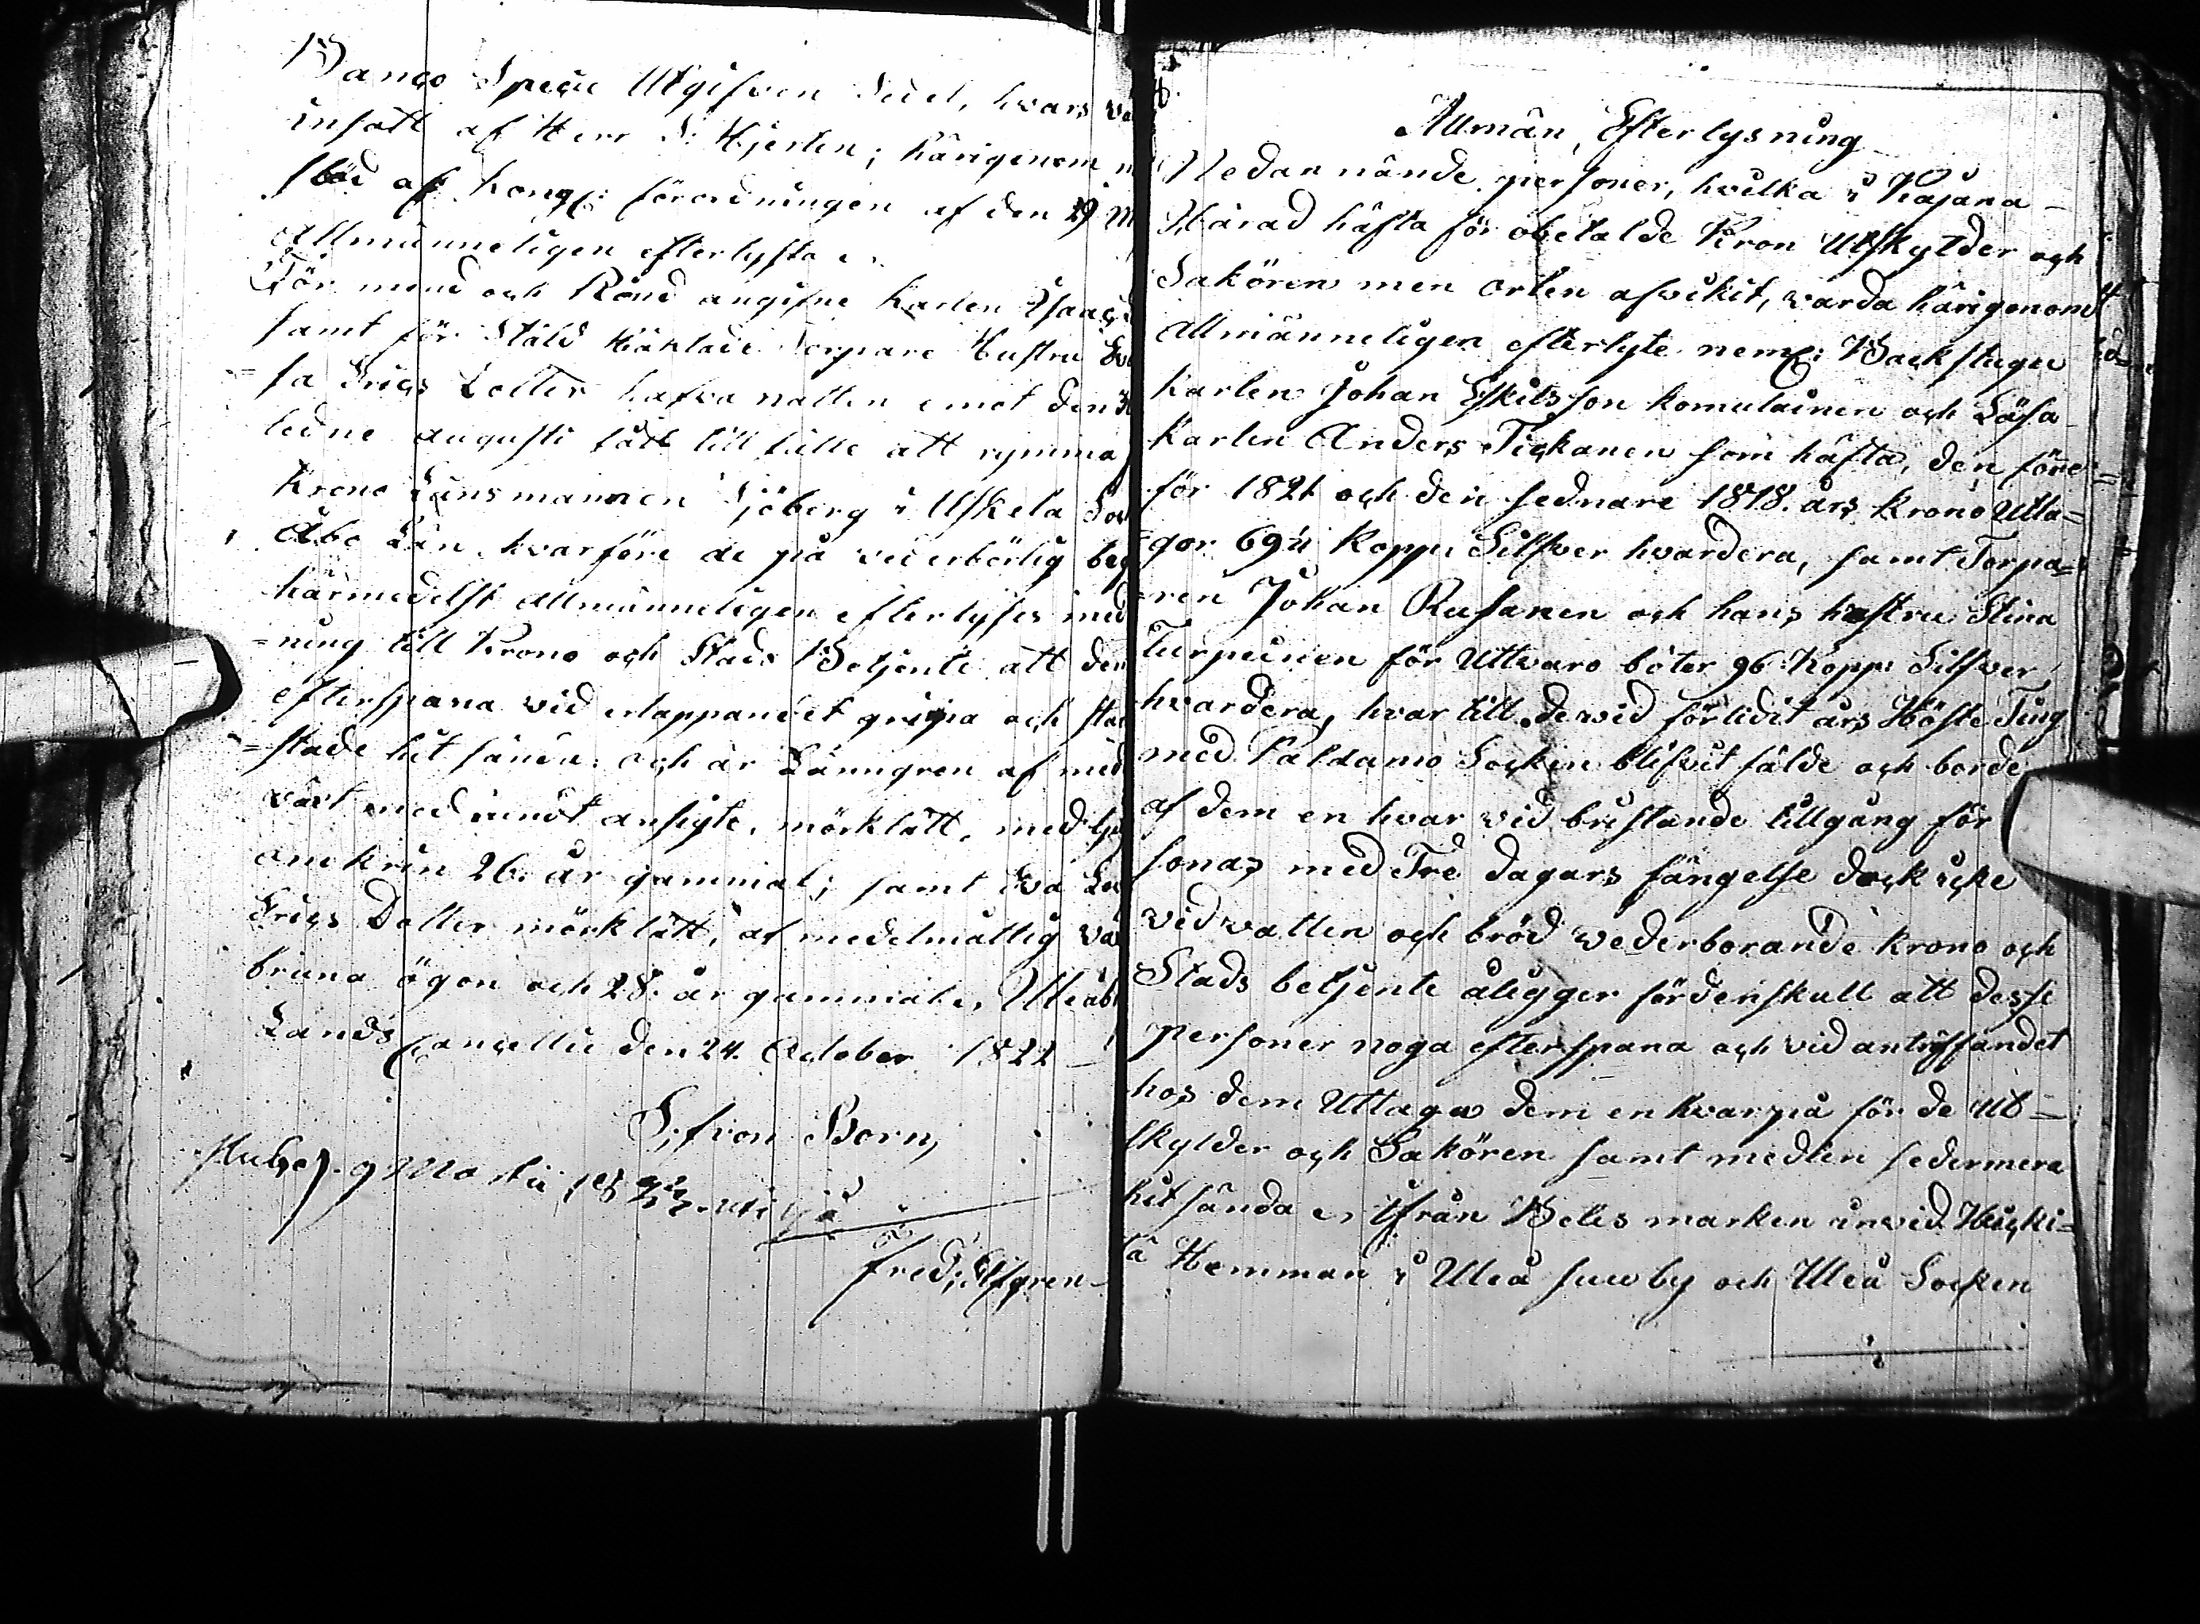 Banco Specie Utgifven Sedel, hvars
insatt af Herr S: Hjerten; härigenom
stöd af Kongl: förordningen af den 29
Allmänneligen efterlysta
För mord och Rånd angifne Karlen Isaac
samt för Stöld Häktade Torpare Hustru
=sa Erics Dotter hafva natten emot den 30
ledne augusti fådt tillfälle att rymma
Krono Länsmannen Sjöberg i Uskela
Åbo Län hvarföre de på vederbörlig
härmedelst Allmänneligen efterlyses med
=ning till Krono och Stads Betjente att
efterspana vid ertappandet gripa och
=stade hit sända. och är Länngren af
växt med rundt ansigte, mörklätt, med
omkrin 26. år gammal; samt Eva
Erics Dotter mörklätt, af medelmåttig
bruna ögon och 28. år gammal.
Lands Cancellie den 24. October 1822
S. f. von Born,
fred: Elfgren
Allmän, Efterlysning
Nedan nände personer, hvilka i Kajana
Härad häfta för obetalde Kron Utskylder och
Sakören men orten afvikit, varda härigenom
Allmänneligen efterlyste neml: Backstugu
Karlen Johan Eskilsson Komulainen och Lösa
Karlen Anders Tickanen som häfta, den förre
för 1821 och den sednare 1818. års Krono Utla=
gor 69½ Kopp: Silfver hvardera, samt Torpa=
ren Johan Rusanen och hans hustru Stina
Turpeinen för Uttvaro böter 96 Kopp: Silfver
hvardera, hvartill de vid förledit års Höste Ting
med Paldamo Socken blifvit fälde och borde
af dem en hvar vid bristande tillgång för
sonas med Tre dagars fängelse dock icke
vid vatten och bröd vederborande krono och
Stads betjente åligger fördenskull att desse
personer noga efterspana och vid antreffandet
hos dem Uttaga dem en hvar på för de ut=
skylder och Sakören samt medlen sedermera
hitsända ifrån Betes marken invid Heicki=
lä Hemman i Uleå suu by och Uleå Socken